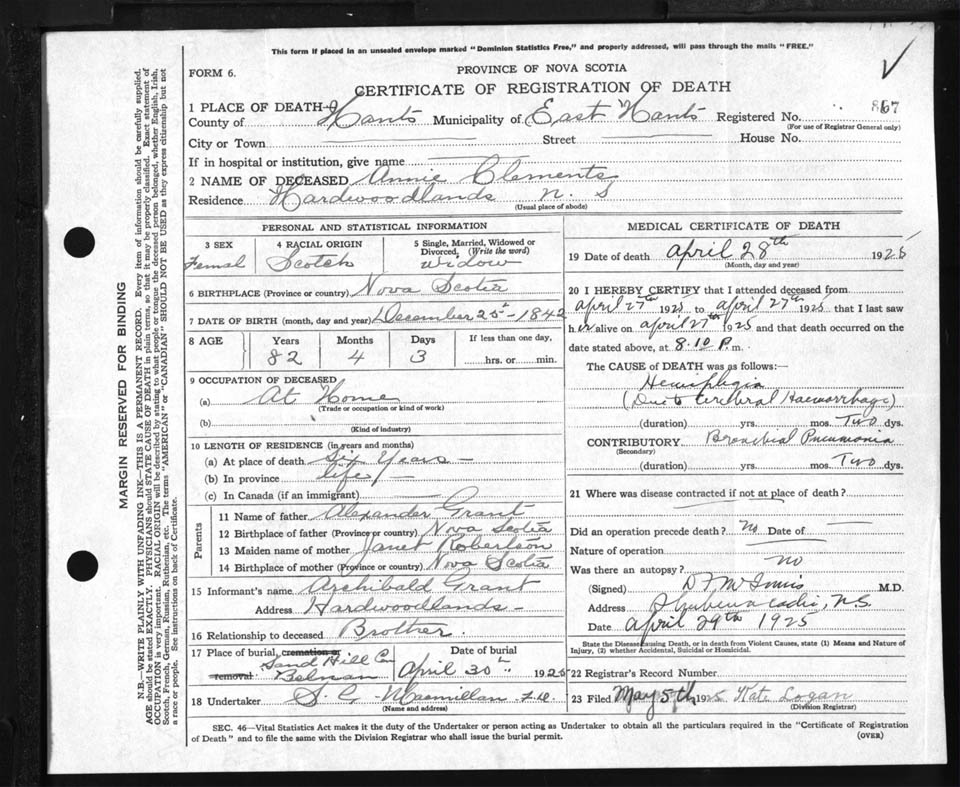 This form if placed in an unsealed envelope marked "Dominion Statistics Free," and properly addressed, will pass through the mails "FREE."
FORM 6.
PROVINCE OF NOVA SCOTIA
CERTIFICATE OF REGISTRATION OF DEATH
1 PLACE OF DEATH—
County of Hants Municipality of East Hants Registered No. 867
(For use of Registrar General only)
City or Town — Street — House No.
If in hospital or institution, give name —
2 NAME OF DECEASED Annie Clements
Residence Hardwoodlands N. S
(Usual place of abode)
PERSONAL AND STATISTICAL INFORMATION
3 SEX
Femal
4 RACIAL ORIGIN
Scotch
5 Single, Married, Widowed or Divorced, (Write the word)
widow
6 BIRTHPLACE (Province or country) Nova Scotia
7 DATE OF BIRTH (month, day and year) December 25 - 1842
8 AGE Years Months Days If less than one day,
82 4 3 hrs. or min.
9 OCCUPATION OF DECEASED
(a) At Home
(Trade or occupation or kind of work)
(b)
(Kind of industry)
10 LENGTH OF RESIDENCE (in years and months)
(a) At place of death Six Years —
(b) In province life —
(c) In Canada (if an immigrant) —
Parents
11 Name of father Alexander Grant
12 Birthplace of father (Province or country) Nova Scotia
13 Maiden name of mother Janet Robertson
14 Birthplace of mother (Province or country) Nova Scotia
15 Informant's name Archibald Grant
Address Hardwoodlands —
16 Relationship to deceased Brother.
17 Place of burial, cremation or removal Sand Hill Cem
Date of burial
April 30th 1925
18 Undertaker S. G. Macmillan
(Name and address)
MEDICAL CERTIFICATE OF DEATH
19 Date of death April 28th 1925
(Month, day and year)
20 I HEREBY CERTIFY that I attended deceased from
April 27th 1925 to April 27th 1925 that I last saw
her alive on April 27th 1925 and that death occurred on
date stated above, at 8.10 P. m.
The CAUSE of DEATH was as follows:—
Hemiplegia
(Due to Cerebral Haemorrhage)
(duration) yrs. mos. Two dys.
CONTRIBUTORY Bronchial Pneumonia
(Secondary)
(duration) yrs. mos. Two dys.
21 Where was disease contracted if not at place of death?
Did an operation precede death? No Date of —
Nature of operation
Was there an autopsy? no
(Signed) D F McInnis M.D.
Address Shubenacadie, N.S.
Date April 29th 1925
State the Disease Causing Death, or in death from Violent Causes, state (1) Means and Nature of Injury, (2) whether Accidental, Suicidal or Homicidal.
22 Registrar's Record Number
23 Filed May 5th 1925 Kate Logan
(Division Registrar)
SEC. 46—Vital Statistics Act makes it the duty of the Undertaker or person acting as Undertaker to obtain all the particulars required in the "Certificate of Registration
of Death" and to file the same with the Division Registrar who shall issue the burial permit.
(OVER)
MARGIN RESERVED FOR BINDING
N.B.—WRITE PLAINLY WITH UNFADING INK—THIS IS A PERMANENT RECORD. Every item of information should be carefully supplied.
AGE should be stated EXACTLY. PHYSICIANS should STATE CAUSE OF DEATH in plain terms, so that it may be properly classified. Exact statement of
OCCUPATION is very important. RACIAL ORIGIN will be described by stating to what people or tongue the deceased person belonged, whether English, Irish,
Scotch, French, German, Russian, Ruthenian, etc. The terms "AMERICAN" or "CANADIAN" SHOULD NOT BE USED as they express citizenship but not
a race or people. See instructions on back of Certificate.